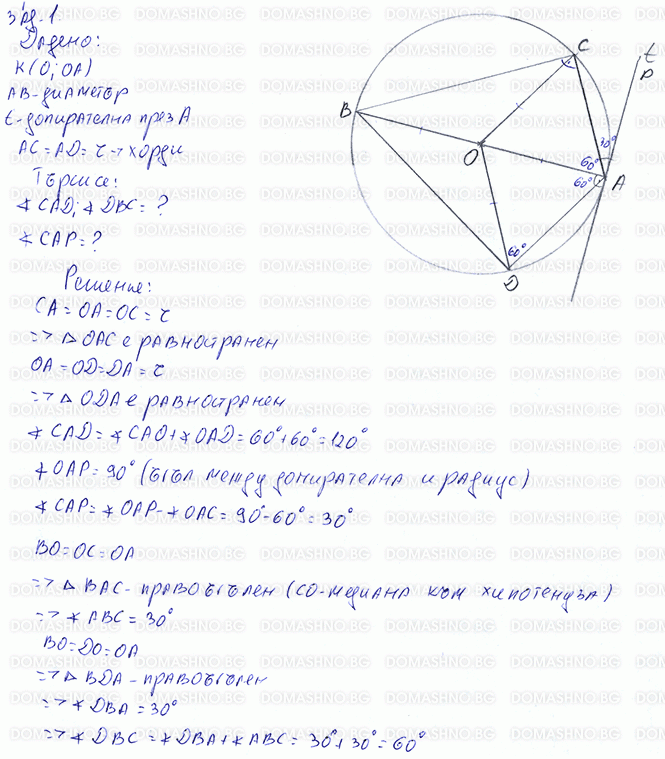 Зад. 1
Дадено:
K(O; OA)
AB-диаметър
t-допирателна през A
AC=AD=r → хорди
Търси се:
∢ CAD; ∢ DBC = ?
∢ CAP = ?
Решение:
CA = OA = OC = r
=> △ OAC е равностранен
OA = OD = DA = r
=> △ ODA е равностранен
∢ CAD = ∢ CAO + ∢ OAD = 60° + 60° = 120°
∢ OAP = 90° (ъгъл между допирателна и радиус)
∢ CAP = ∢ OAP - ∢ OAC = 90° - 60° = 30°
BO = OC = OA
=> △ BAC - правоъгълен (CO-медиана към хипотенуза)
=> ∢ ABC = 30°
BO = DO = OA
=> △ BDA - правоъгълен
=> ∢ DBA = 30°
=> ∢ DBC = ∢ DBA + ∢ ABC = 30° + 30° = 60°
C
t
P
B
30°
O
60°
60°
A
60°
D
DOMASHNO.BG